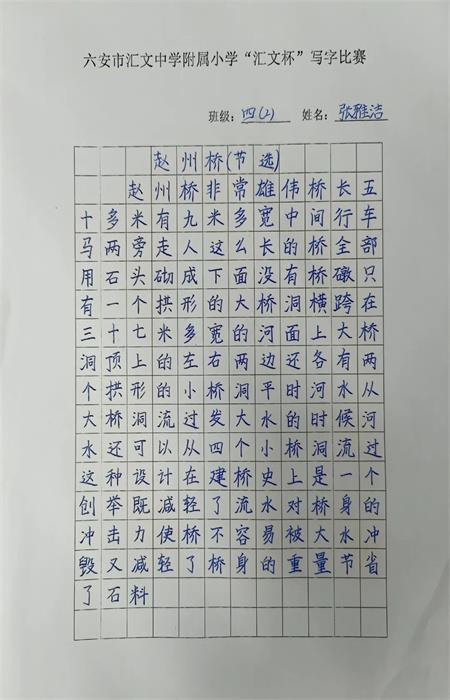 六安市汇文中学附属小学“汇文杯”写字比赛
班级：四(2) 姓名：张雅洁
赵州桥(节选)
赵州桥非常雄伟桥长五
十多米有九米多宽中间行车
马两旁走人这么长的桥全部
用石头砌成下面没有桥礅只
有一个拱形的大桥洞横跨在
三十七米多宽的河面上大桥
洞顶上的左右两边还各有两
个拱形的小桥洞平时河水从
大桥洞流过发大水的时候河
水还可以从四个小桥洞流过
这种设计在建桥史上是一个
创举既减轻了流水对桥身的
冲击力使桥不容易被大水冲
毁又减轻了桥身的重量节省
了石料